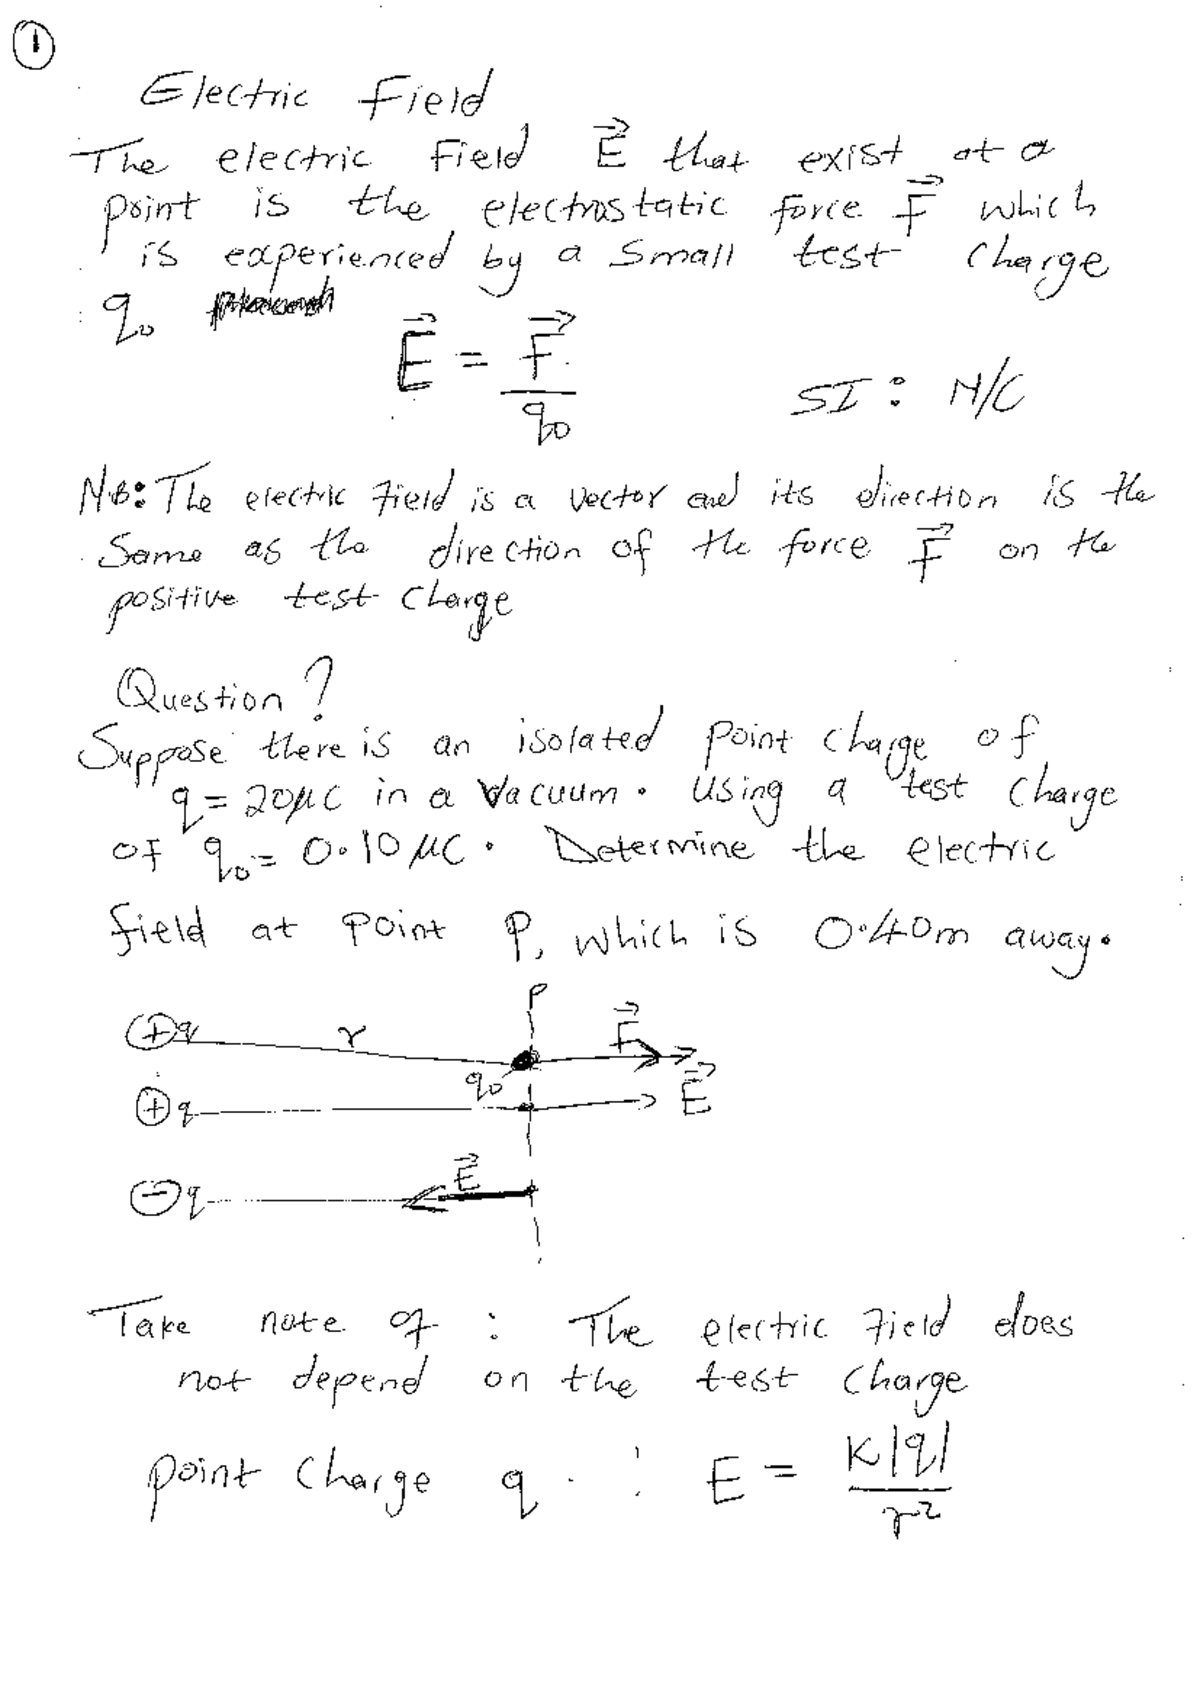 1
Electric Field
The electric Field E⃗ that exist at a
point is the electrostatic force F⃗ which
is experienced by a small test charge
q₀
E⃗ = F⃗
q₀
SI: N/C
NB: The electric field is a vector and its direction is the
Same as the direction of the force F⃗ on the
positive test charge
Question?
Suppose there is an isolated point charge of
q = 20μC in a Vacuum. Using a test charge
of q₀ = 0.10 μC. Determine the electric
field at point P, which is 0.40m away.
P
+ q r F⃗
q₀
+ q E⃗
E⃗
− q
Take note of : The electric field does
not depend on the test charge
point charge q : E = K|q|
r²